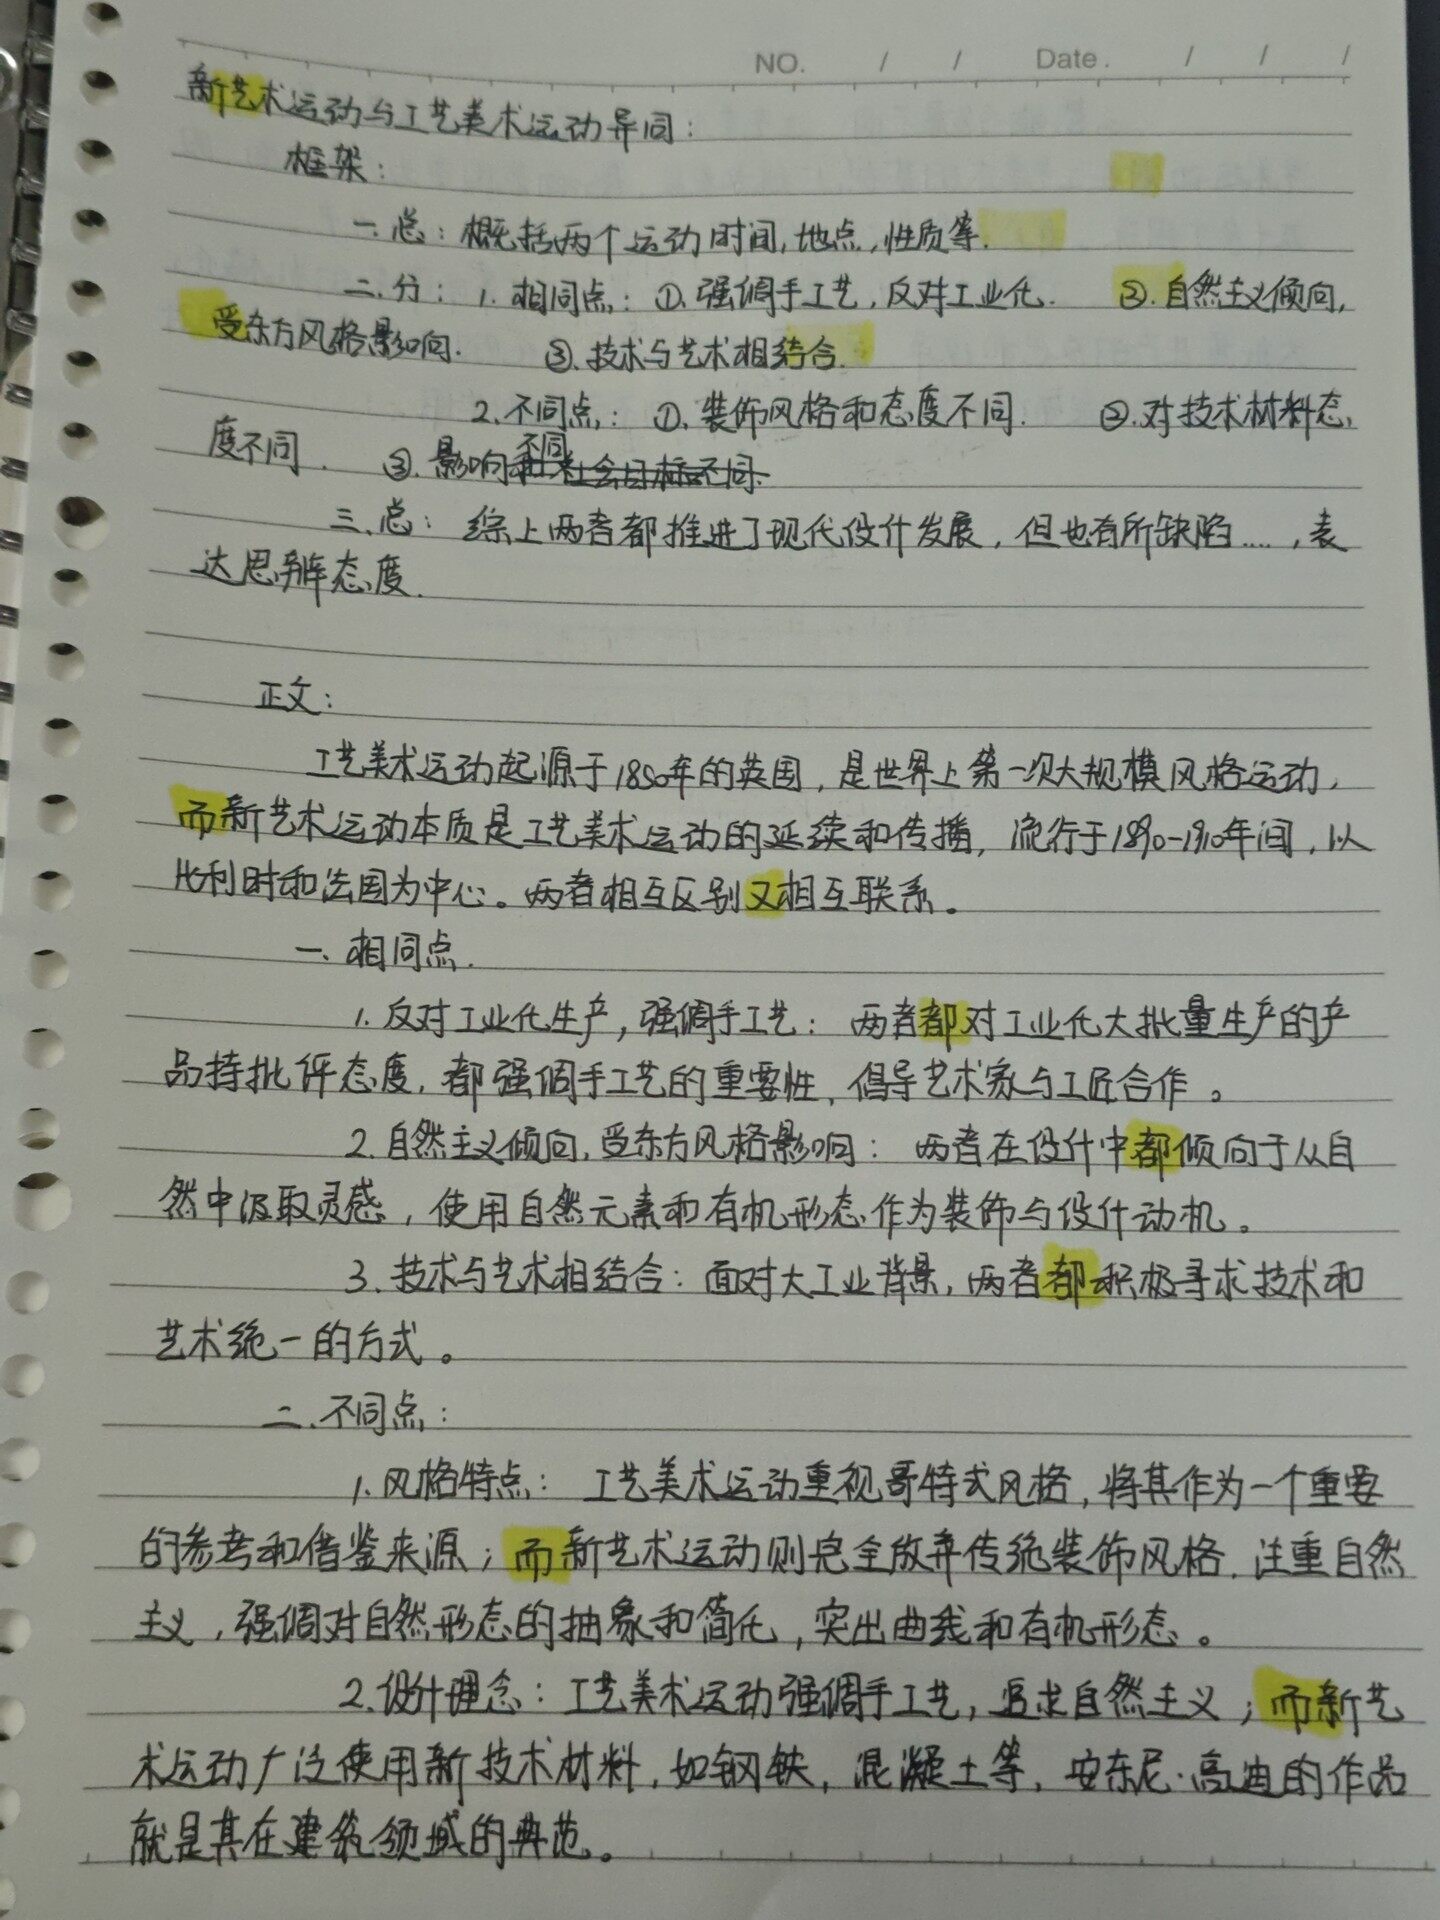 NO. / / Date. / / /
新艺术运动与工艺美术运动异同：
框架：
一.总：概括两个运动时间,地点,性质等.
二.分：1.相同点：①.强调手工艺,反对工业化. ②.自然主义倾向,
受东方风格影响. ③.技术与艺术相结合.
2.不同点：①.装饰风格和态度不同. ②.对技术材料态
度不同. ③.影响不同
三.总：综上两者都推进了现代设计发展,但也有所缺陷....,表
达思辨态度.
正文：
工艺美术运动起源于1850年的英国,是世界上第一次大规模风格运动,
而新艺术运动本质是工艺美术运动的延续和传播,流行于1890-1910年间,以
比利时和法国为中心。两者相互区别又相互联系。
一、相同点.
1.反对工业化生产,强调手工艺：两者都对工业化大批量生产的产
品持批评态度,都强调手工艺的重要性,倡导艺术家与工匠合作。
2.自然主义倾向,受东方风格影响：两者在设计中都倾向于从自
然中汲取灵感,使用自然元素和有机形态作为装饰与设计动机。
3.技术与艺术相结合：面对大工业背景,两者都积极寻求技术和
艺术统一的方式。
二.不同点：
1.风格特点：工艺美术运动重视哥特式风格,将其作为一个重要
的参考和借鉴来源；而新艺术运动则完全放弃传统装饰风格.注重自然
主义,强调对自然形态的抽象和简化,突出曲线和有机形态。
2.设计理念：工艺美术运动强调手工艺,追求自然主义；而新艺
术运动广泛使用新技术材料,如钢铁,混凝土等,安东尼·高迪的作品
就是其在建筑领域的典范。